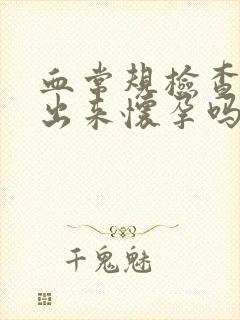 血常规检查
出来怀孕吗
千鬼魅